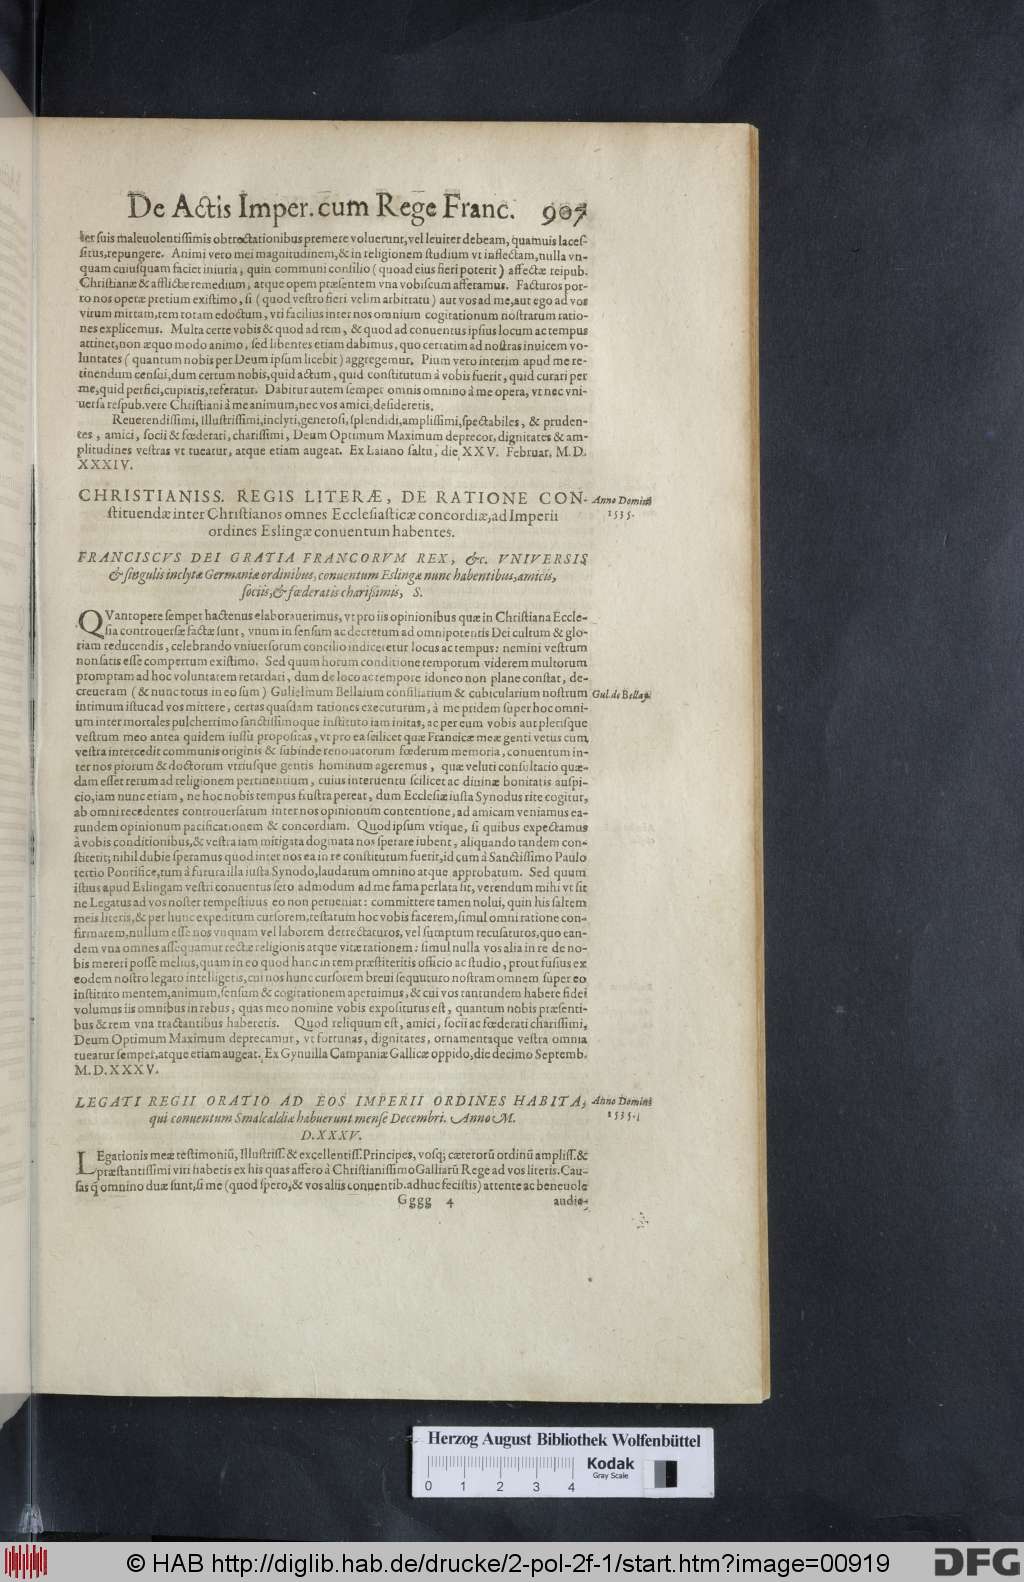 De Actis Imper. cum Rege Franc. 907
ter suis maleuolentissimis obtrectationibus premere voluerunt, vel leuiter debeam, quamuis laces-
situs, repungere. Animi vero mei magnitudinem, & in religionem studium vt inflectam, nulla vn-
quam cuiusquam faciet iniuria, quin communi consilio (quoad eius fieri poterit) affectæ reipub.
Christianæ & afflictæ remedium, atque opem præsentem vna vobiscum afferamus. Facturos por-
ro nos operæ pretium existimo, si (quod vestro fieri velim arbitratu) aut vos ad me, aut ego ad vos
virum mittam, rem totam edoctum, vti facilius inter nos omnium cogitationum nostrarum ratio-
nes explicemus. Multa certe vobis & quod ad rem, & quod ad conuentus ipsius locum ac tempus
attinet, non æquo modo animo, sed libentes etiam dabimus, quo certatim ad nostras inuicem vo-
luntates (quantum nobis per Deum ipsum licebit) aggregemur. Pium vero interim apud me re-
tinendum censui, dum certum nobis, quid actum, quid constitutum à vobis fuerit, quid curari per
me, quid perfici, cupiatis, referatur. Dabitur autem semper omnis omnino à me opera, vt nec vni-
uersa respub. vere Christiani à me animum, nec vos amici, desideretis.
Reuerendissimi, Illustrissimi, inclyti, generosi, splendidi, amplissimi, spectabiles, & pruden-
tes, amici, socii & fœderati, charissimi, Deum Optimum Maximum deprecor, dignitates & am-
plitudines vestras vt tueatur, atque etiam augeat. Ex Laiano saltu, die XXV. Februar. M. D.
XXXIV.
CHRISTIANISS. REGIS LITERÆ, DE RATIONE CON-
stituendæ inter Christianos omnes Ecclesiasticæ concordiæ, ad Imperii
ordines Eslingæ conuentum habentes.
Anno Domini
1535.
FRANCISCVS DEI GRATIA FRANCORVM REX, &c. VNIVERSIS
& singulis inclytæ Germaniæ ordinibus, conuentum Eslingæ nunc habentibus, amicis,
sociis, & fœderatis charißimis, S.
QVantopere semper hactenus elaborauerimus, vt pro iis opinionibus quæ in Christiana Eccle-
sia controuersæ factæ sunt, vnum in sensum ac decretum ad omnipotentis Dei cultum & glo-
riam reducendis, celebrando vniuersorum concilio indiceretur locus ac tempus: nemini vestrum
non satis esse compertum existimo. Sed quum horum conditione temporum viderem multorum
promptam ad hoc voluntatem retardari, dum de loco ac tempore idoneo non plane constat, de-
creueram (& nunc totus in eo sum) Gulielmum Bellaium consiliarium & cubicularium nostrum
Gul. de Bellay.
intimum istuc ad vos mittere, certas quasdam rationes executurum, à me pridem super hoc omni-
um inter mortales pulcherrimo sanctissimoque instituto iam initas, ac per eum vobis aut plerisque
vestrum meo antea quidem iussu propositas, vt pro ea scilicet quæ Francicæ meæ genti vetus cum
vestra intercedit communis originis & subinde renouatorum fœderum memoria, conuentum in-
ter nos piorum & doctorum vtriusque gentis hominum ageremus, quæ veluti consultacio quæ-
dam esset rerum ad religionem pertinentium, cuius interuentu scilicet ac diuinæ bonitatis auspi-
cio, iam nunc etiam, ne hoc nobis tempus frustra pereat, dum Ecclesiæ iusta Synodus rite cogitur,
ab omni recedentes controuersarum inter nos opinionum contentione, ad amicam veniamus ea-
rundem opinionum pacificationem & concordiam. Quod ipsum vtique, si quibus expectamus
à vobis conditionibus, & vestra iam mitigata dogmata nos sperare iubent, aliquando tandem con-
stiterit; nihil dubie speramus quod inter nos ea in re constitutum fuerit, id cum à Sanctissimo Paulo
tertio Pontifice, tum à futura illa iusta Synodo, laudatum omnino atque approbatum. Sed quum
istius apud Eslingam vestri conuentus sero admodum ad me fama perlata sit, verendum mihi vt sit
ne Legatus ad vos noster tempestiuus eo non perueniat: committere tamen nolui, quin his saltem
meis literis, & per hunc expeditum cursorem, testatum hoc vobis facerem, simul omni ratione con-
firmarem, nullum esse nos vnquam vel laborem detrectaturos, vel sumptum recusaturos, quo ean-
dem vna omnes assequamur rectæ religionis atque vitæ rationem: simul nulla vos alia in re de no-
bis mereri posse melius, quam in eo quod hanc in rem præstiteritis officio ac studio, prout fusius ex
eodem nostro legato intelligetis, cui nos hunc cursorem breui sequuturo nostram omnem super eo
instituto mentem, animum, sensum & cogitationem aperuimus, & cui vos tantundem habere fidei
volumus iis omnibus in rebus, quas meo nomine vobis expositurus est, quantum nobis præsenti-
bus & rem vna tractantibus haberetis. Quod reliquum est, amici, socii ac fœderati charissimi,
Deum Optimum Maximum deprecamur, vt fortunas, dignitates, ornamentaque vestra omnia
tueatur semper, atque etiam augeat. Ex Gynuilla Campaniæ Gallicæ oppido, die decimo Septemb.
M. D. XXXV.
LEGATI REGII ORATIO AD EOS IMPERII ORDINES HABITA,
qui conuentum Smalcaldiæ habuerunt mense Decembri. Anno M.
D. XXXV.
Anno Domini
1535.
LEgationis meæ testimoniũ, Illustriss. & excellentiss. Principes, vosq; cæterorũ ordinũ ampliss. &
præstantissimi viri habetis ex his quas affero à Christianissimo Galliarũ Rege ad vos literis. Cau-
sas q̃ omnino duæ sunt, si me (quod spero, & vos aliis conuentib. adhuc fecistis) attente ac beneuole
Gggg 4 audie-
Herzog August Bibliothek Wolfenbüttel
Kodak
Gray Scale
0 1 2 3 4
© HAB http://diglib.hab.de/drucke/2-pol-2f-1/start.htm?image=00919
DFG